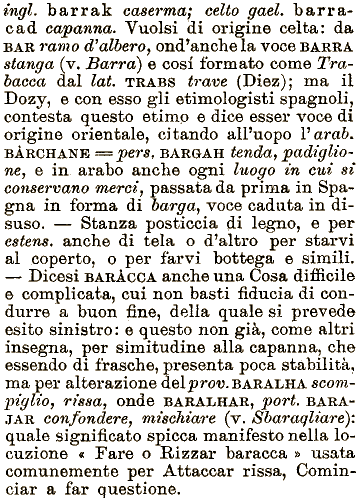 ingl. barrak caserma; celto gael. barra-
cad capanna. Vuolsi di origine celta: da
BAR ramo d'albero, ond'anche la voce BARRA
stanga (v. Barra) e cosí formato come Tra-
bacca dal lat. TRABS trave (Diez); ma il
Dozy, e con esso gli etimologisti spagnoli,
contesta questo etimo e dice esser voce di
origine orientale, citando all'uopo l'arab.
BÀRCHANE = pers. BARGAH tenda, padiglio-
ne, e in arabo anche ogni luogo in cui si
conservano merci, passata da prima in Spa-
gna in forma di barga, voce caduta in di-
suso. — Stanza posticcia di legno, e per
estens. anche di tela o d'altro per starvi
al coperto, o per farvi bottega e simili.
— Dicesi BARÀCCA anche una Cosa difficile
e complicata, cui non basti fiducia di con-
durre a buon fine, della quale si prevede
esito sinistro: e questo non già, come altri
insegna, per similitudine alla capanna, che
essendo di frasche, presenta poca stabilità,
ma per alterazione del prov. BARALHA scom-
piglio, rissa, onde BARALHAR, port. BARA-
JAR confondere, mischiare (v. Sbaragliare):
quale significato spicca manifesto nella lo-
cuzione « Fare o Rizzar baracca » usata
comunemente per Attaccar rissa, Comin-
ciar a far questione.